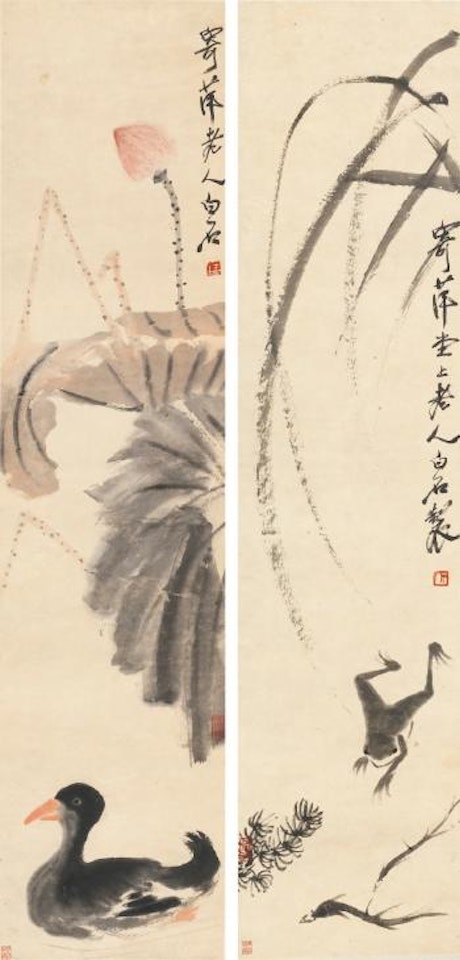 寄萍堂上老人白石製
寄萍老人白石